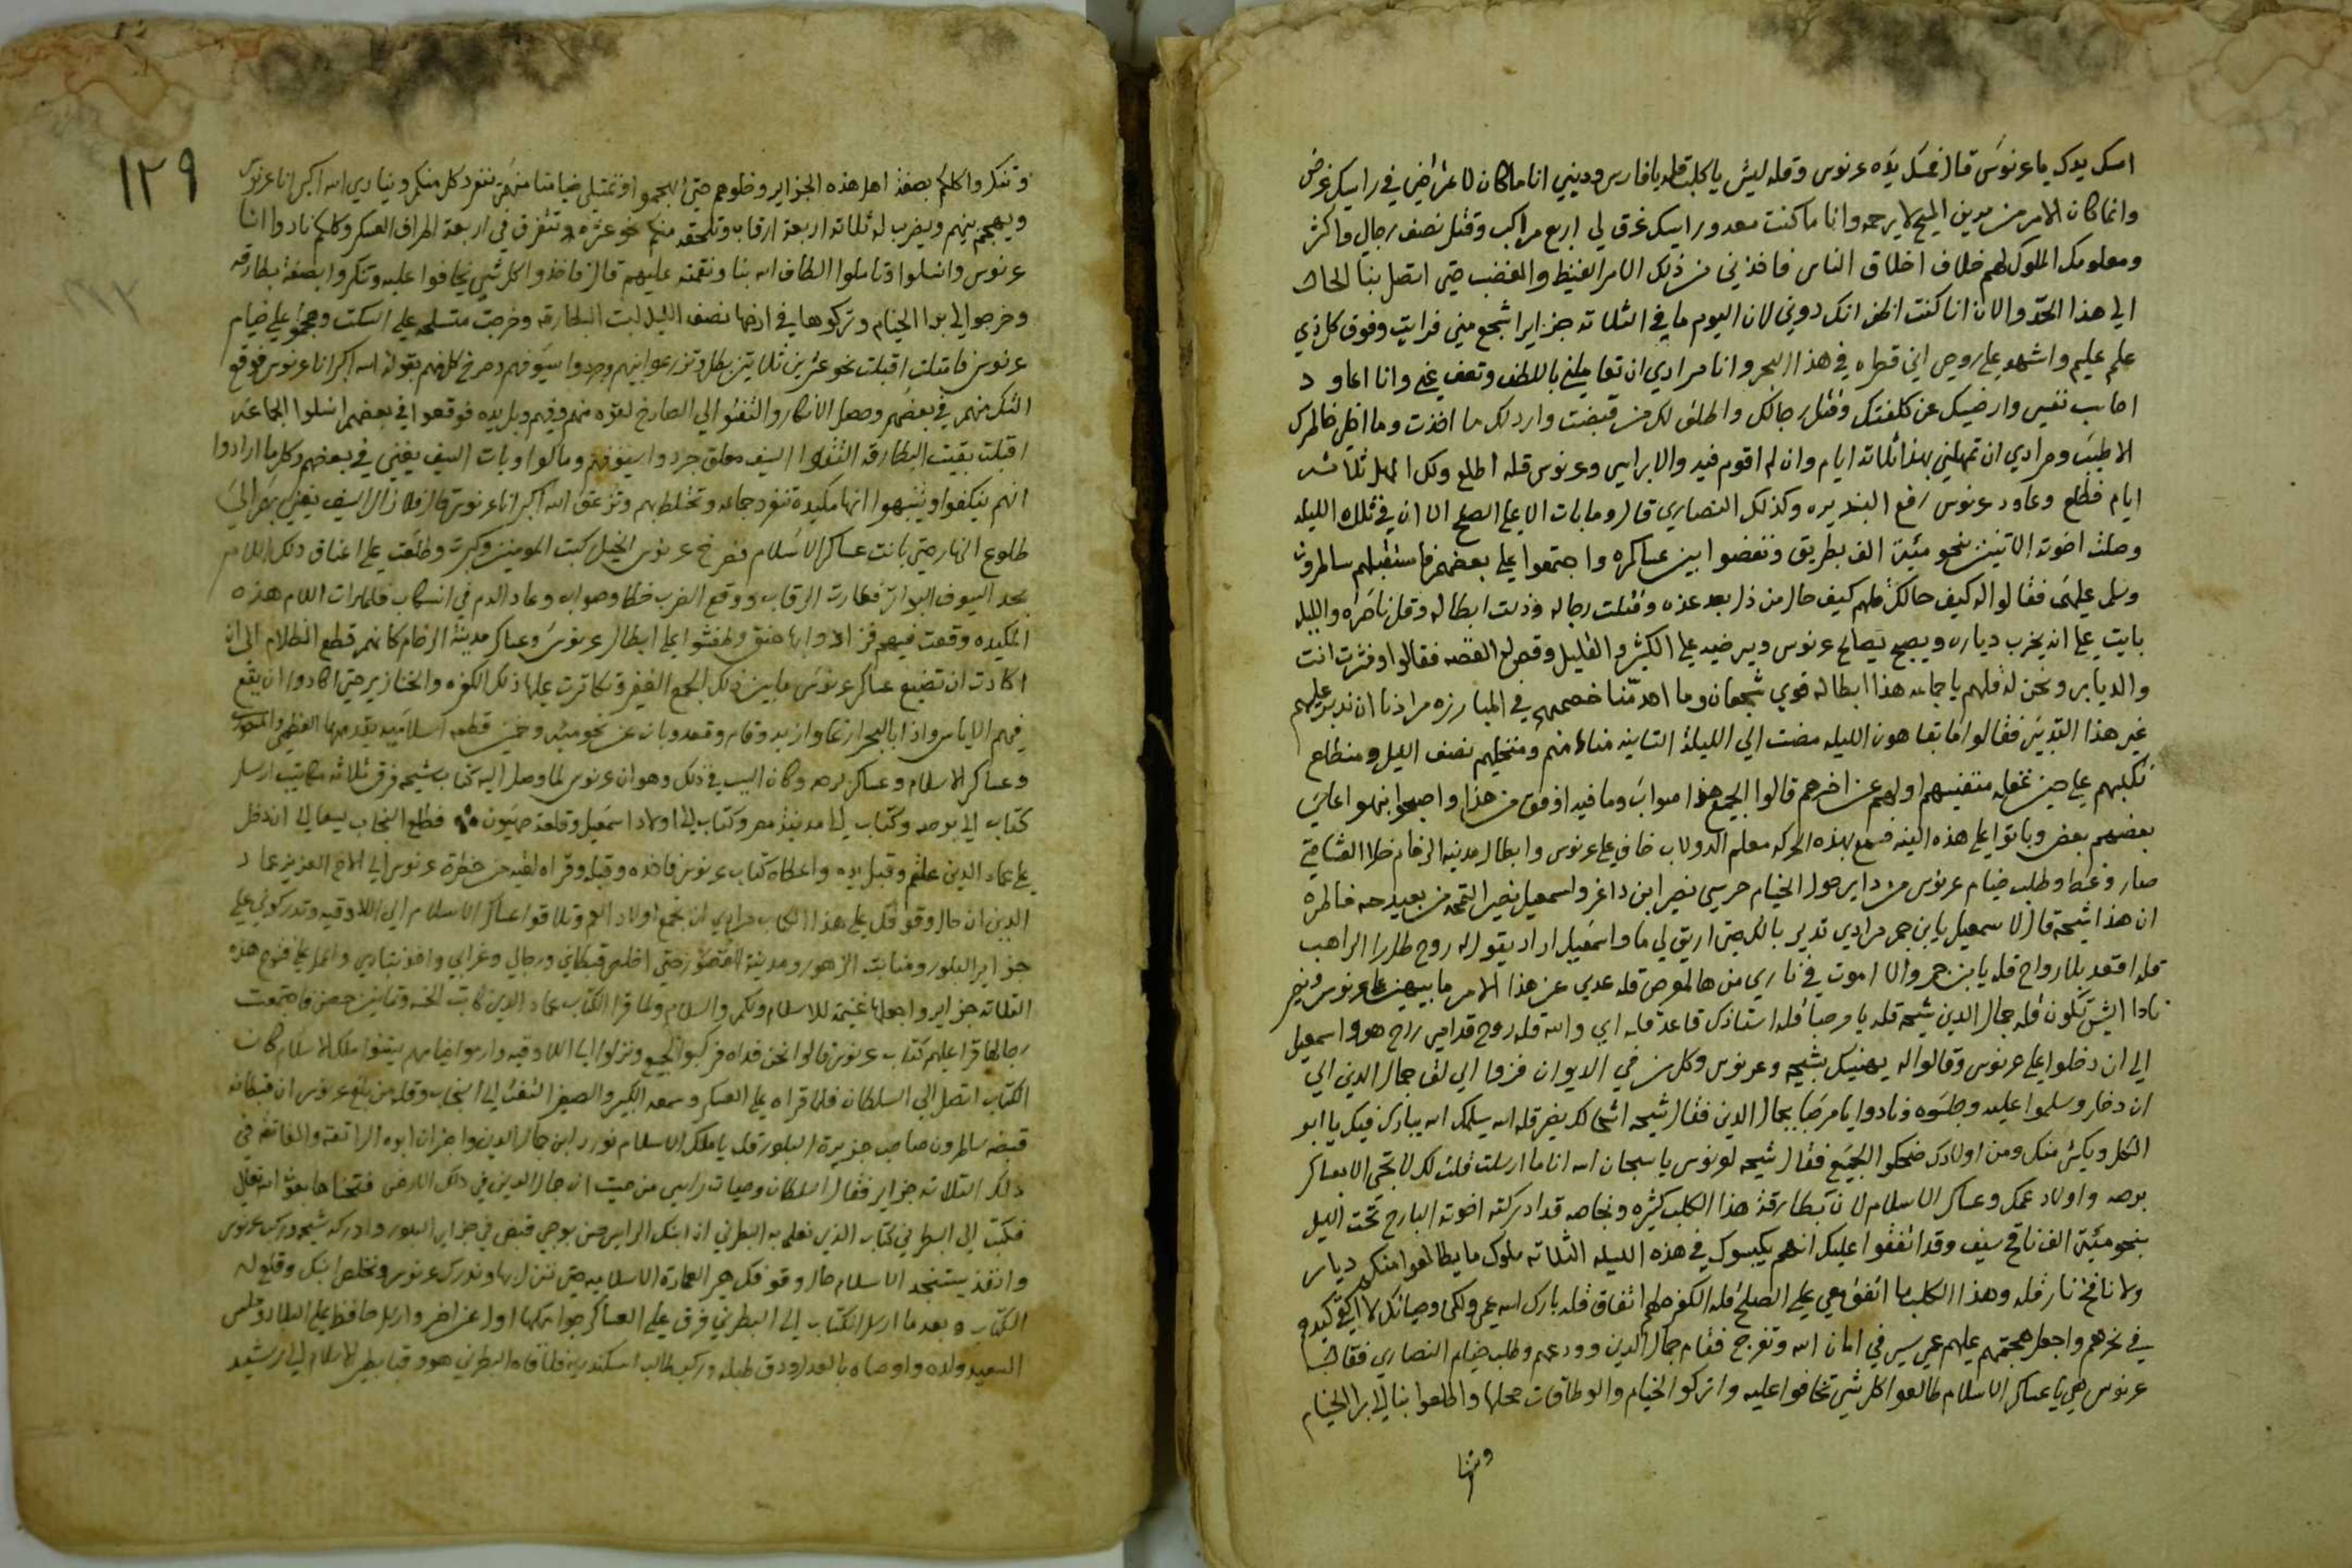 امسك يدك يا عرنوس قال فمسك يده عرنوس وقله ليش يا كلب قله يا فارس وديني انا ما كان لاعراضي في راسك غرض
وانما كان الامر من مدين المسيح لا يرحمه وانا ما كنت معه وراسك غرق لي اربع مراكب وقتل نصف رجالي واكثر
ومعلومك الملوك لهم خلاف اخلاق الناس فاخذني من ذلك الامر الغيظ والغضب حتى اتصل بنا الحال
الى هذا الحد والان انا كنت اظن انك دوني لان اليوم ما في الثلاثه جزاير اشجع مني فرايت وفوق كل ذي
علم عليم واشهد على روحي اني قطره في هذا البحر وانا مرادي ان تعاملني باللطف وتعف عني وانا اعاود
احاسب نفسي وارضيك عن كلفتك وقتل رجالك واطلق لك من قبضت وارد لك ما اخذت وما اظن خاطرك
الا طيب ومرادي ان تمهلني بهذا ثلاثة ايام وان لم اقوم فيه والا براسي وعرنوس قله اطلع ولك المهل ثلاثة
ايام فطلع وعاود عرنوس رفع البنديره وكذلك النصارى قال وما بات الا على الصلح الا ان في تلك الليله
وصلت اخوته الاتنين بنحو مئة الف بطريق ونفضوا بين عساكره واجتمعوا على بعضهم فاستقبلهم سالمرون
وسلم عليهم فقالوا له كيف حالك قلهم كيف حال من ذل بعد عزه وقتلت رجاله وذلت ابطاله وقل ناصره والليله
بايت على انه يخرب دياره ويصبح يصالح عرنوس ويرضيه على الكثير والقليل وقص لهم القصه فقالوا وفشرت انت
والديابر ونحن له قلهم يا جماعه هذا ابطاله قوي شجعان وما احد منا خصمهم في المبارزه مرادنا ان ندبر عليهم
غير هذا التدبير فقالوا ما بقا هون الليله مضت الى الليلة الثانيه مناكل منهم ومنخليهم نصف الليل ومنطلع
نكبسهم على حين غفله منفنيهم اولهم عن اخرهم قالوا الجميع هذا صواب وما فيه اوفق من هذا واصبحوا نهوا على
بعضهم بعض وباتوا على هذه النيه فسمع بهذه الحركه معلم الدولاب خاف على عرنوس وابطال مدينة الرخام خلا العشا حتى
صار وغط وطلب خيام عرنوس من داير حول الخيام حرسي نصير ابن داغر واسمعيل نصير التمه من بعيد حه خاطره
ان هذا شيحه قال لاسمعيل يا بن حجر مرادي تدير بالك حتى اريق لي ما واسمعيل اراد يقول له روح طلع الراهب
قله اقعد بلا رواح قله يا بن حجر والا اموت في ناري من هالمرص قله عدي عن هذا الامر ما بيهين على عرنوس ونصير
نادا ايش تكون قله جمال الدين شيحه قله يا مرحبا قله استاذك قاعد قله اي والله قله روح قدامي راح هو واسمعيل
الى ان دخلوا على عرنوس وقالوا له يهنيك بشيحه وعرنوس وكل من في الديوان فزوا الى لقا جمال الدين الى
ان دخل وسلموا عليه وجلسوه ونادوا يا مرحبا بجمال الدين فقال شيحه اش حالك يضر قله الله يسلمك الله يبارك فيك يا ابو
الكل ويكثر منك ومن اولادك ضحكوا الجميع فقال شيحه لعرنوس يا سبحان الله انا ما ارسلت قلت لك لا تجي الا بعساكر
برصه واولاد عمك وعساكر الاسلام لان بطارقة هذا الكلب كثره وبخاصه قد ادركته اخوته البارح تحت الليل
بنحو مئة الف ناقر سيف وقد اتفقوا عليك انهم يكبسوك في هذه الليله الثلاثه ملوك ما يطالعوا منكم ديار
ولا نافخ نار قله وهذا الكلب ما اتفق معي على الصلح قله الكفر ما لهم اتفاق قله بارك الله عمرو لكن وحياتك لا اكفى كيدهم
في نحرهم واجعل هجمتهم عليهم عي سير في امان الله وتفرج فقام جمال الدين وودعهم وطلب خيام النصارى فقال
عرنوس هي يا عساكر الاسلام طالعوا كل شي تخافوا عليه واتركوا الخيام والوطاقات محلها واطلعوا بنا الى برا الخيام
وتنا
١٢٩
وتنكروا كلكم بصفة اهل هذه الجزاير وخلوهم حتى يهجموا وتمتلي خيامنا منهم تنفرد كل منكم وينادي الله اكبر انا عرنوس
ويهجم بينهم ويضرب له ثلاثه اربعة ارقاب وتلحقه منكم نحو عشره وتتفرق في اربعة اطراف العسكر وكلكم نادوا انا
عرنوس وانسلوا وتاملوا الطاف الله بنا ونقمته عليهم قال فاخذوا كل شي يخافوا عليه وتنكروا بصفة بطارقه
وخرجوا الى برا الخيام وتركوها في ارضها نصف الليل لبت البطارقه وخرجت متسلحه على السكت وهجموا على خيام
عرنوس فامتلت اقبلت نحو عشرين ثلاثين بطل وتزرعوا بينهم وجردوا سيوفهم وصرخ كل منهم بقوله الله اكبر انا عرنوس فوقع
الشك منهم في بعضهم وحصل الانكار والتفتوا الى الصارخ لقوه منهم وفيهم وبلديه فوقعوا في بعضهم انسلوا الجماعه
اقبلت بقيت البطارقه التقوا السيف معلق جردوا سيوفهم ومالوا وبات السيف يغني في بعضهم وكل ما ارادوا
انهم ينكفوا وينتبهوا انها مكيدة تنفرد جماعه وتختلط بهم وتزعق الله اكبر انا عرنوس قال فلا زال السيف يغني بهم الى
طلوع النهار حتى بانت عساكر الاسلام فصرخ عرنوس الخيل كبت المومنين وكبرت وطلقت على اعناق ذلك اللام
بحد السيوف البواتر فطارت الرقاب ووقع الضرب خطا وصوابه وعاد الدم في انسكاب فلما رات اللام هذه
المكيده وقعت فيهم فزادوا بها حنق وطفقوا على ابطال عرنوس وعساكر مدينة الرخام كانهم قطع الظلام الى ان
اكادت ان تضيع عساكر عرنوس ما بين ذلك الجمع الغفير وتكاترت عليها ذلك الكفره والخنازير حتى اكادوا ان يقع
فيهم الاياس واذا بالبحر ارغا وازبد وقام وقعد وبان عن نحو مئه وخمسين قطعه اسلاميه يقدمها القطي والمحمود
وعساكر الاسلام وعساكر برصه وكان السبب في ذلك وهو ان عرنوس لما وصل اليه كتاب شيحه فرق ثلاثة مكاتيب ارسل
كتاب الى برصه وكتاب الى مدينة مصر وكتاب الى اولاد اسمعيل وقلعة صهيون فطلع النجاب يسعا الى ان دخل
على عماد الدين علقم وقبل يده واعطاه كتاب عرنوس فاخذه وقبله وقراه لقيه من حضرة عرنوس الى الاخ العزيز عماد
الدين ان حال وقوفك على هذا الكتاب مرادي ان تجمع اولاد العم وتلاقوا عساكر الاسلام الى اللادقيه وتدركوني على
جزاير البلور ومنابت الزهور ومدينة القصور حتى اخلص قبطاني ورجالي وغرابي واخذ بتاري واعمل على فتوح هذه
الثلاثه جزاير واجعلها غنيمه للاسلام ولكم والسلام ولما قرا الكتاب عماد الدين كاتب الخمسه وثمانين حصن فاجتمعت
رجالها قرا عليهم كتاب عرنوس قالوا نحن فداه فركبوا الجميع ونزلوا الى اللادقيه وارموا خيامهم يستنوا ملك الاسلام كان
الكتاب اتصل الى السلطان فلما قراه على العسكر وسمعه الكبير والصغير التفت الى النجاب وقله من بلغ عرنوس ان قبطانه
قبضه سالمرون صاحب جزيرة البلور قله يا ملك الاسلام نورد ابن جمال الدين واخذ ان ابوه الراتعه والفاتقه في
ذلك الثلاثه جزاير فقال السلطان وحيات راسي من حيث ان جمال الدين في ذلك الارض فتحناها بعون الله تعالى
فكتب الى البطرني كتاب الذي نعلم به البطرني ان ابنك الرايس حسن بوجي قبض في جزاير البلور وادركه شيحه وادركه عرنوس
وانفذ يستنجد الاسلام حال وقوفك حضر العمارة الاسلاميه حتى ننزل بها وندرك عرنوس ونخلص ابنك وقلع له
الكتاب وبعد ما ارسل الكتاب الى البطرني فرق على العساكر جوامكها اول عن اخر وارسل حافظ على البلاد وجلس
السعيد ولده واوصاه بالعدل ودق طبله وركب طالب اسكندريه فلاقاه البطرني هو وقباطين الاسلام الى رشيد